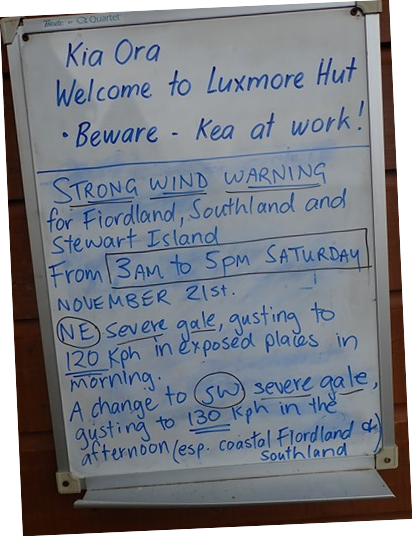 Quartet
Kia Ora
Welcome to Luxmore Hut
• Beware - Kea at work!
STRONG WIND WARNING
for Fiordland, Southland and
Stewart Island
From 3AM to 5PM SATURDAY
NOVEMBER 21st.
NE severe gale, gusting to
120 Kph in exposed places in
morning.
A change to SW severe gale,
gusting to 130 Kph in the
afternoon (esp. coastal Fiordland &
Southland)